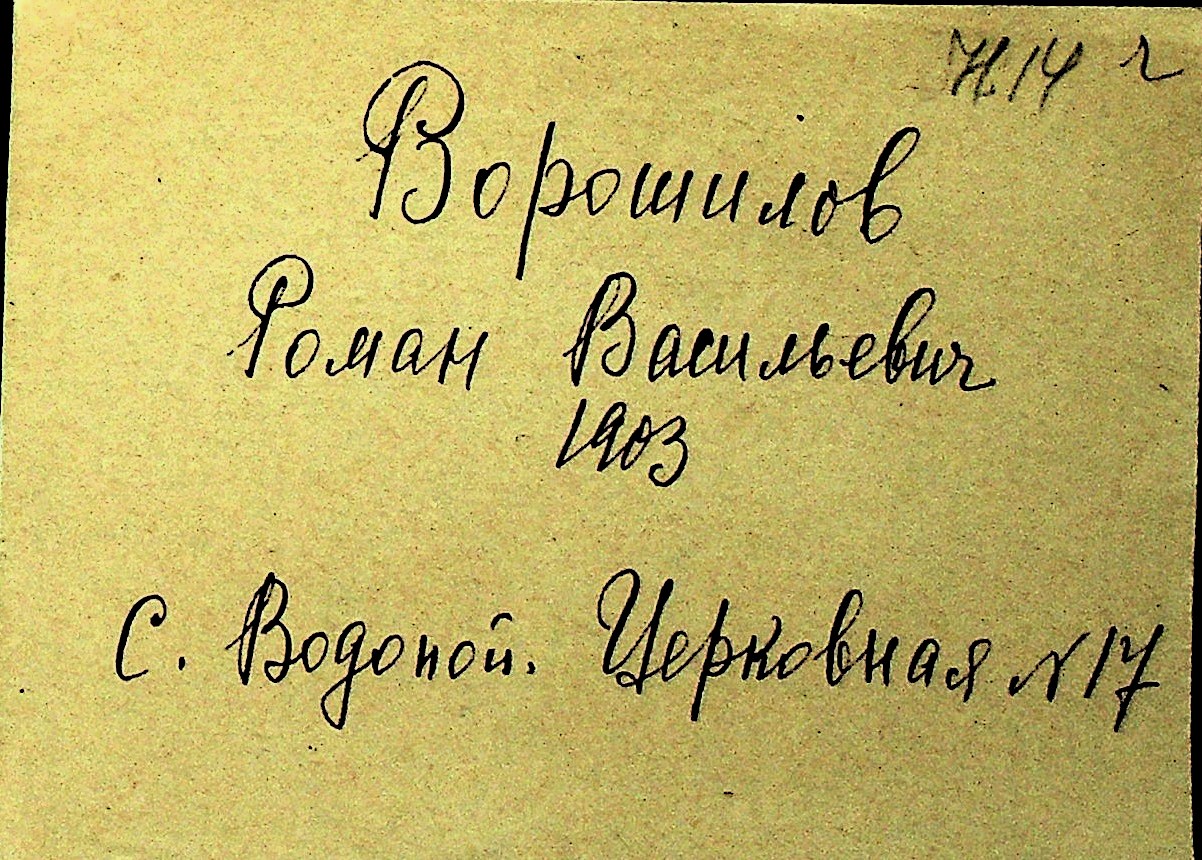 Ворошилов
Роман Васильевич
1903
с. Водопой. Церковная №17